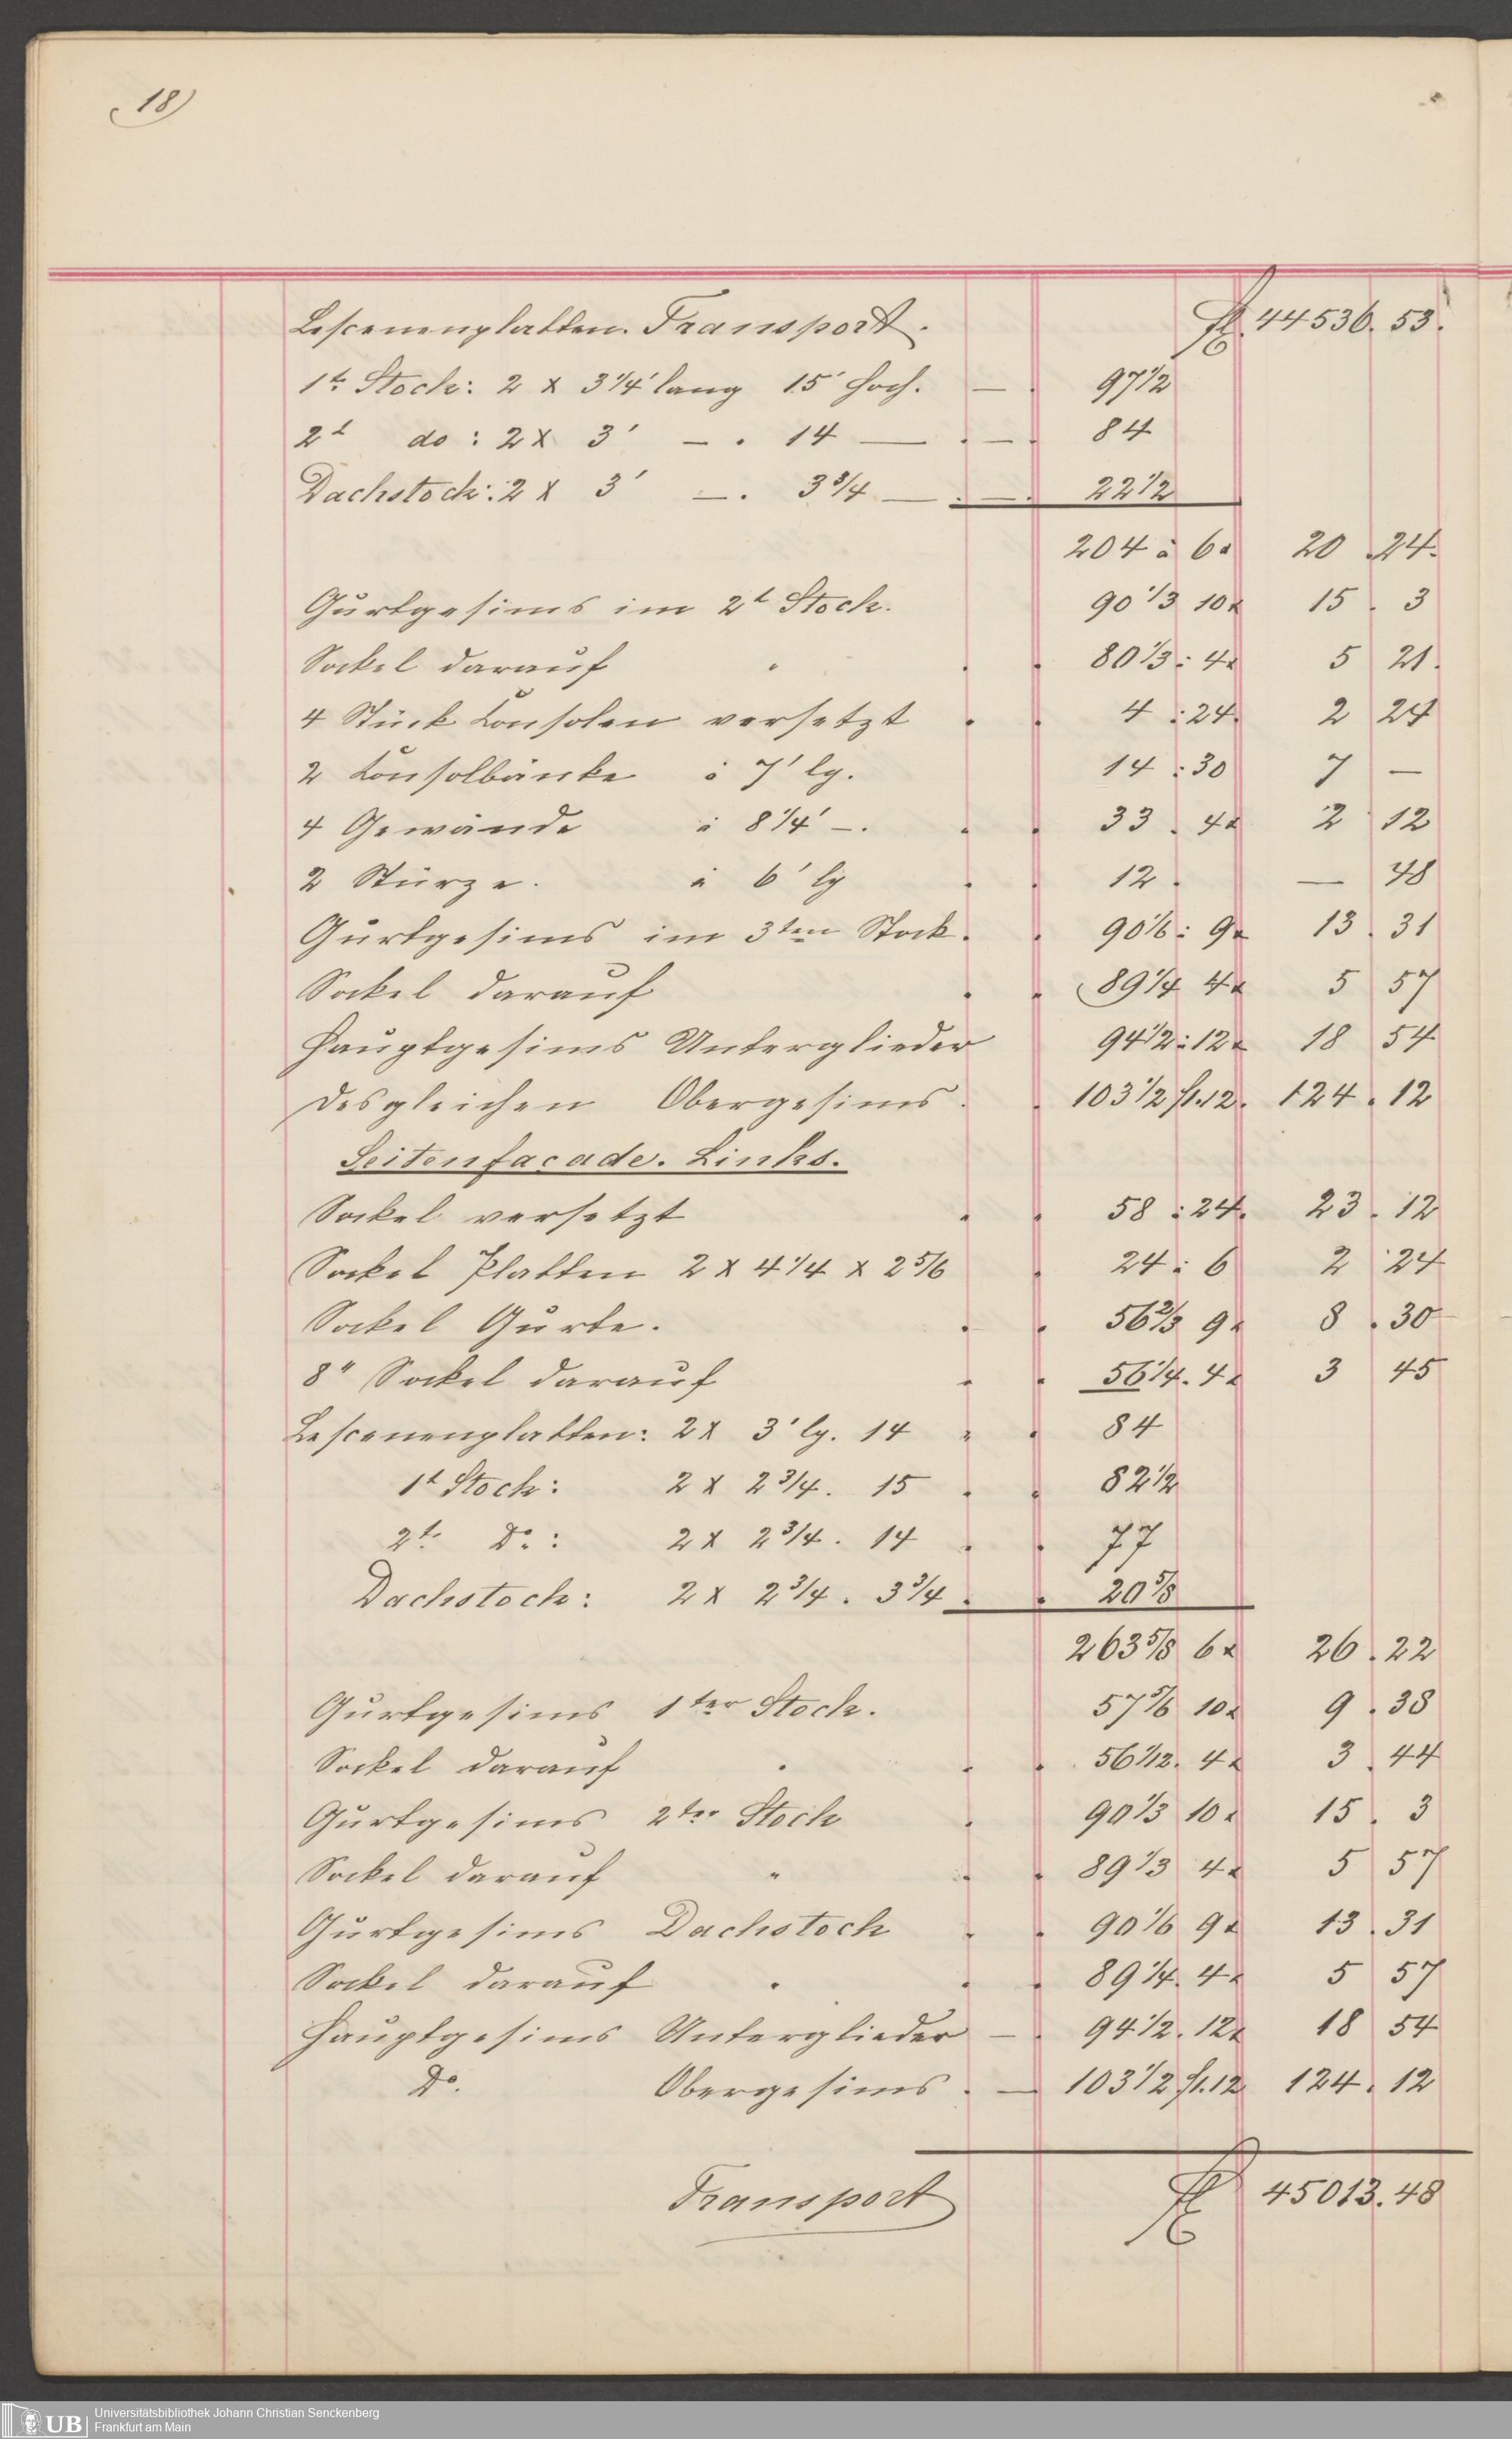 18)
Lescenenplatten. Transport. fl. 44536. 53.
1t. Stock: 2 x 3 1/4' lang 15' hoch. — . 97 1/2
2t do: 2 x 3' — . 14 — . — . 84
Dachstock: 2 x 3' — . 3 3/4 — . — . 22 1/2
204 à 6x 20 . 24.
Gurtgesims im 2t Stock. 90 1/3 10x 15 . 3
Sockel darauf " . . 80 1/3 : 4x 5 21.
4 Stück Consolen versetzt . . 4 : 24. 2 24
2 Consolbänke à 7' lg. 14 : 30 7 —
4 Gewände à 8 1/4' — . . . 33 . 4x 2 12
2 Stürze. à 6' lg . . 12 . — 48
Gurtgesims im 3ten Stock. . 90 1/6 : 9x 13 . 31
Sockel darauf . . 89 1/4 4x 5 57
Hauptgesims Unterglieder 94 1/2 : 12x 18 54
desgleichen Obergesims . . 103 1/2 fl. 12. 124 . 12
Seitenfacade. Links.
Sockel versetzt . . 58 : 24. 23 . 12
Sockel Platten 2 x 4 1/4 x 2 5/6 . 24 : 6 2 24
Sockel Gurte. . . 56 2/3 9x 8 . 30
8" Sockel darauf . . 56 1/4. 4x 3 45
Lescenenplatten: 2 x 3' lg. 14 " . 84
1t Stock: 2 x 2 3/4. 15 . . 82 1/2
2t. Do.: 2 x 2 3/4. 14 . . 77
Dachstock: 2 x 2 3/4 . 3 3/4 . . 20 5/8
263 5/8 6x 26 . 22
Gurtgesims 1ter Stock. 57 5/6 10x 9 . 38
Sockel darauf " . . 56 1/12. 4x 3 . 44
Gurtgesims 2ter Stock . 90 1/3 10x 15 . 3
Sockel darauf " . . 89 1/3 4x 5 57
Gurtgesims Dachstock . . 90 1/6 9x 13 . 31
Sockel darauf " . . 89 1/4. 4x 5 57
Hauptgesims Unterglieder — . 94 1/2. 12x 18 54
Do. Obergesims . — 103 1/2 fl. 12 124 . 12
Transport fl 45013. 48
UB Universitätsbibliothek Johann Christian Senckenberg
Frankfurt am Main